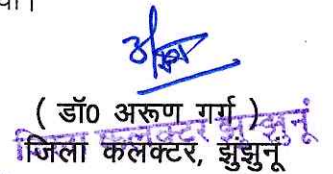 ( डॉ0 अरूण गर्ग )
जिला कलक्टर, झुझुनूं
जिला कलक्टर झुंझुनूं